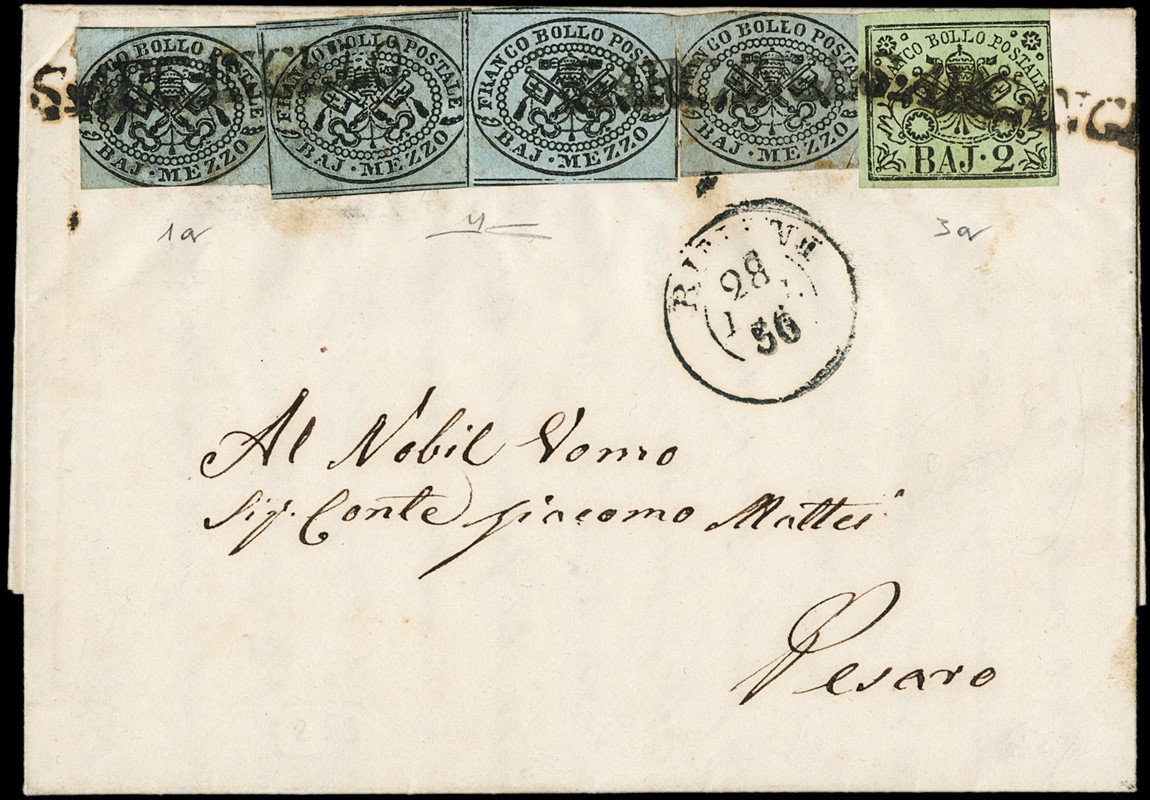 FRANCO BOLLO POSTALE
BAJ · MEZZO
FRANCO BOLLO POSTALE
BAJ · MEZZO
FRANCO BOLLO POSTALE
BAJ · MEZZO
FRANCO BOLLO POSTALE
BAJ · MEZZO
FRANCO BOLLO POSTALE
BAJ · 2
1a
3a
28
56
Al Nobil Uomo
Sig. Conte Giacomo Mattei
Pesaro